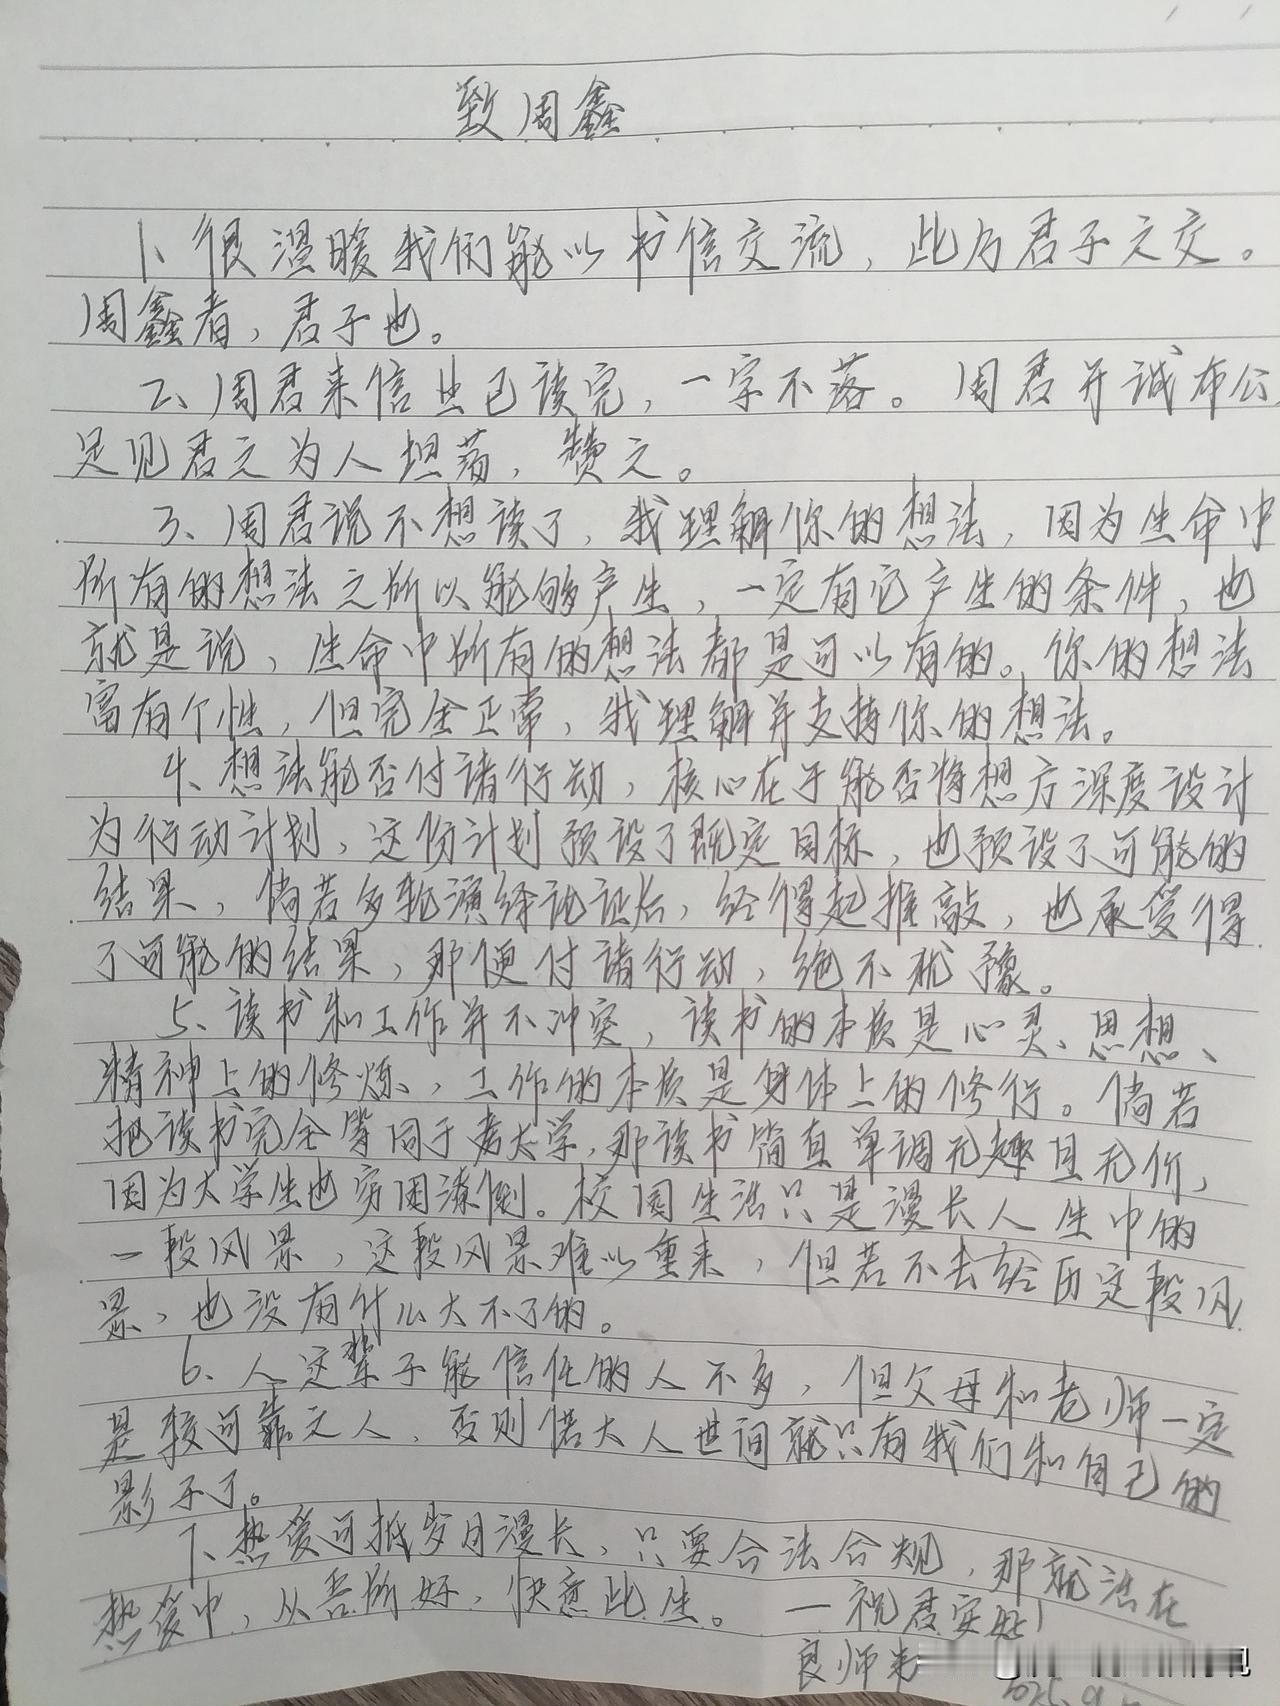 致周鑫
1、很温暖我们能以书信交流，此为君子之交。
周鑫者，君子也。
2、周君来信业已读完，一字不落。周君开诚布公，
足见君之为人坦荡，赞之。
3、周君说不想读了，我理解你的想法，因为生命中
所有的想法之所以能够产生，一定有它产生的条件，也
就是说，生命中所有的想法都是可以有的。你的想法
富有个性，但完全正常，我理解并支持你的想法。
4、想法能否付诸行动，核心在于能否将想方深度设计
为行动计划，这份计划预设了既定目标，也预设了可能的
结果，倘若多轮演绎论证后，经得起推敲，也承受得
了可能的结果，那便付诸行动，绝不犹豫。
5、读书和工作并不冲突，读书的本质是心灵、思想、
精神上的修炼，工作的本质是身体上的修行。倘若
把读书完全等同于考大学，那读书简直单调无趣且无价，
因为大学生也穷困潦倒。校园生活只是漫长人生中的
一段风景，这段风景难以重来，但若不去经历这段风
景，也没有什么大不了的。
6、人这辈子能信任的人不多，但父母和老师一定
是较可靠之人，否则偌大人世间就只有我们和自己的
影子了。
7、热爱可抵岁月漫长，只要合法合规，那就活在
热爱中，从吾所好，快意此生。 一祝君安好！
良师
2025.9